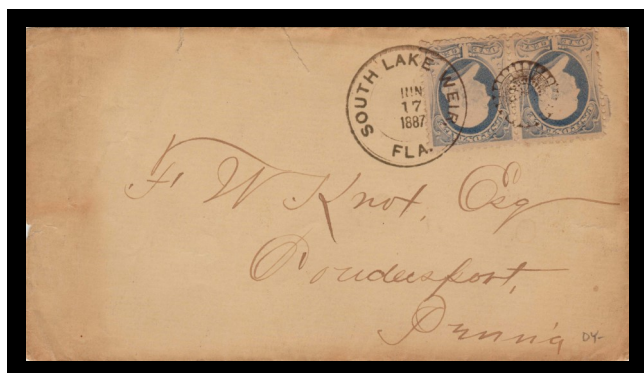 SOUTH LAKE WEIR
JUN
17
1887
FLA.
F. W. Knox, Esq
Coudersport,
Penn'a
04-